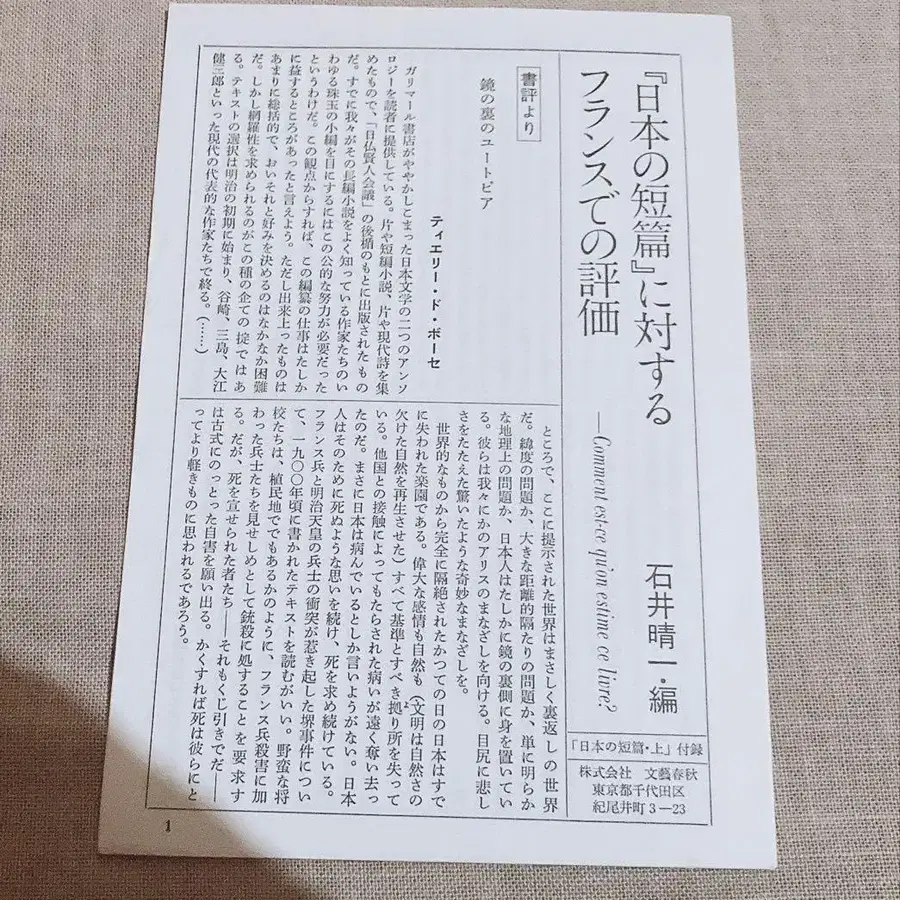 『日本の短篇』に対する
フランスでの評価
―Comment est-ce qu'on estime ce livre?
石井晴一・編
「日本の短篇・上」付録
株式会社 文藝春秋
東京都千代田区
紀尾井町3―23
書評より
鏡の裏のユートピア
ティエリー・ド・ボーセ
ガリマール書店がややかしこまった日本文学の二つのアンソ
ロジーを読者に提供している。片や短編小説、片や現代詩を集
めたもので、「日仏賢人会議」の後楯のもとに出版されたもの
だ。すでに我々がその長編小説をよく知っている作家たちのい
わゆる珠玉の小編を目にするにはこの公的な努力が必要だった
というわけだ。この観点からすれば、この編纂の仕事はたしか
に益するところがあったと言えよう。ただし出来上ったものは
あまりに総括的で、おいそれと好みを決めるのはなかなか困難
だ。しかし網羅性を求められるのがこの種の企ての掟ではあ
る。テキストの選択は明治の初期に始まり、谷崎、三島、大江
健三郎といった現代の代表的な作家たちで終る。(……)
ところで、ここに提示された世界はまさしく裏返しの世界
だ。緯度の問題か、大きな距離的隔たりの問題か、単に明らか
な地理上の問題か、日本人はたしかに鏡の裏側に身を置いてい
る。彼らは我々にかのアリスのまなざしを向ける。目尻に悲し
さをたたえた驚いたような奇妙なまなざしを。
世界的なものから完全に隔絶されたかつての日の日本はすで
に失われた楽園である。偉大な感情も自然も(文明は自然さの
欠けた自然を再生させた)すべて基準とすべき拠り所を失って
いる。他国との接触によってもたらされた病いが遠く奪い去っ
たのだ。まさに日本は病んでいるとしか言いようがない。日本
人はそのために死ぬような思いを続け、死を求め続けている。
フランス兵と明治天皇の兵士の衝突が惹き起した堺事件につい
て、一九〇〇年頃に書かれたテキストを読むがいい。野蛮な将
校たちは、植民地ででもあるかのように、フランス兵殺害に加
わった兵士たちを見せしめとして銃殺に処することを要求す
る。だが、死を宣せられた者たち――それもくじ引きでだ――
は古式にのっとった自害を願い出る。かくすれば死は彼らにと
ってより軽きものに思われるであろう。
1